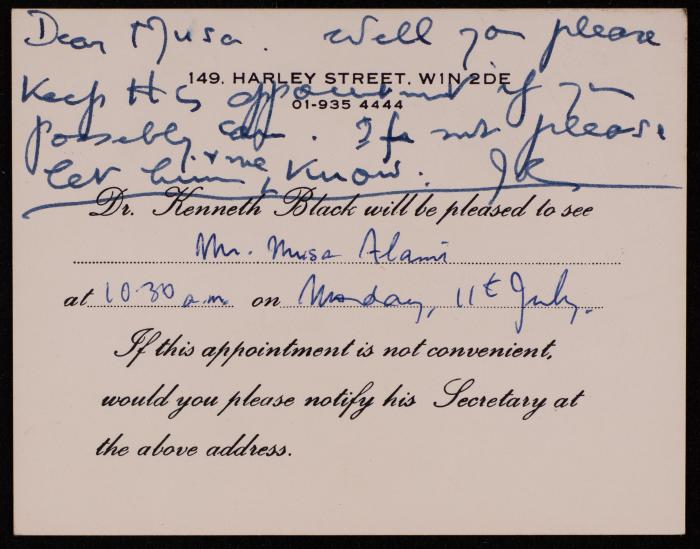 Dear Musa. Will you please
149, HARLEY STREET, W1N 2DE
Keep this appointment if you
01-935 4444
possibly can. If not please
let him, + me know. JK
Dr. Kenneth Black will be pleased to see
Mr. Musa Alami
at 10.30 a.m. on Monday, 11th July.
If this appointment is not convenient,
would you please notify his Secretary at
the above address.